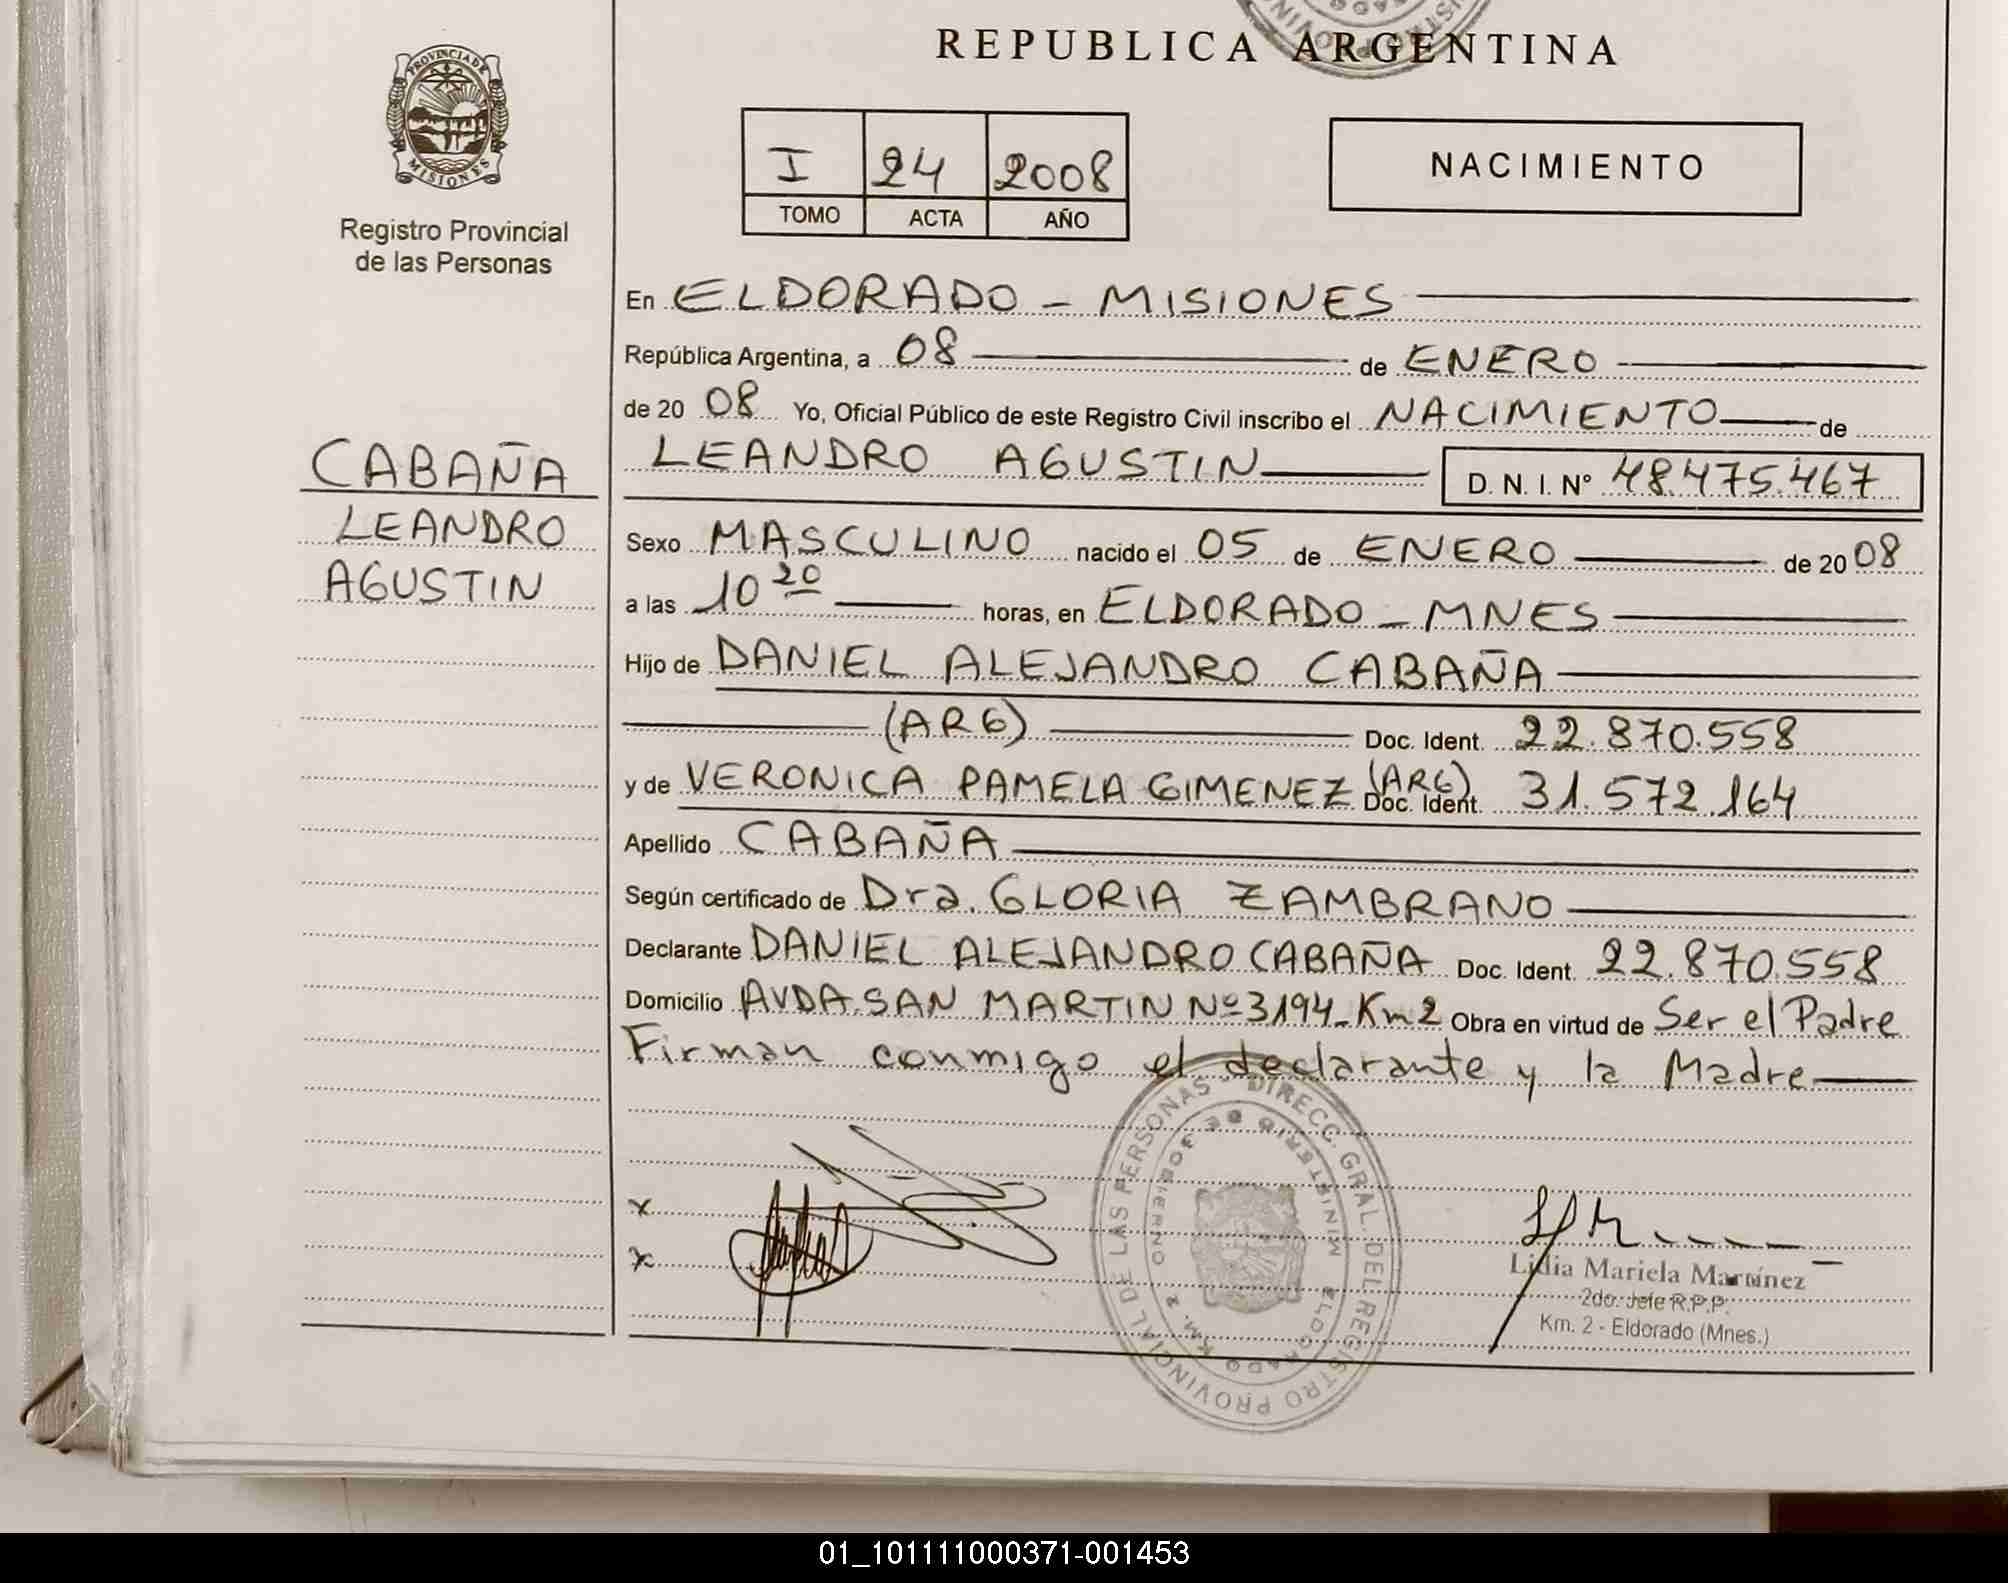 REPUBLICA ARGENTINA
PROVINCIA DE
MISIONES
Registro Provincial
de las Personas
I 24 2008
TOMO ACTA AÑO
NACIMIENTO
En ELDORADO - MISIONES
República Argentina, a 08 de ENERO
de 20 08 Yo, Oficial Público de este Registro Civil inscribo el NACIMIENTO de
LEANDRO AGUSTIN D. N. I. Nº 48.475.467
CABAÑA
LEANDRO
AGUSTIN
Sexo MASCULINO nacido el 05 de ENERO de 20 08
a las 10 20 horas, en ELDORADO - MNES
Hijo de DANIEL ALEJANDRO CABAÑA
(ARG) Doc. Ident. 22.870.558
y de VERONICA PAMELA GIMENEZ (ARG) Doc. Ident. 31.572.164
Apellido CABAÑA
Según certificado de Dra. GLORIA ZAMBRANO
Declarante DANIEL ALEJANDRO CABAÑA Doc. Ident. 22.870.558
Domicilio AVDA. SAN MARTIN Nº 3194 - Km 2 Obra en virtud de Ser el Padre
Firman conmigo el declarante y la Madre
x
x
DIRECC. GRAL. DEL REGISTRO PROVINCIAL DE LAS PERSONAS
MINISTERIO DE GOBIERNO
ELDORADO KM. 2
Lidia Mariela Martínez
2do. Jefe R.P.P.
Km. 2 - Eldorado (Mnes.)
01_101111000371-001453